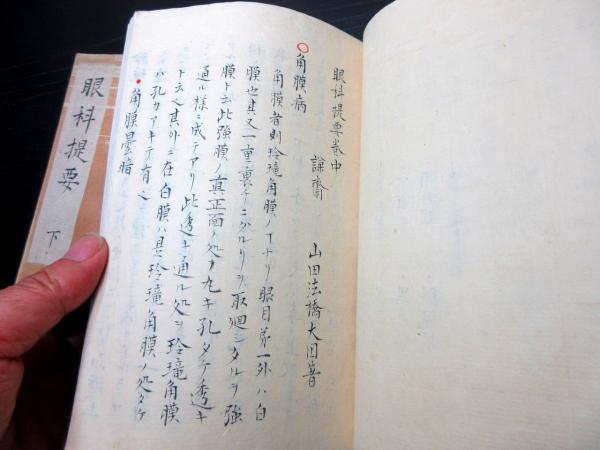 眼科提要巻中
謙齋 山田法橋大円著
角膜病
角膜者則玲瓏角膜ノコトナリ眼目第一外ハ白
膜也其又一重裏手ニグルリヲ取廻シタルヲ強
膜ト云此強膜ノ真正面ノ処ヲ丸キ孔タケ透キ
通ル様ニ成テアリ此透キ通ル処ヲ玲瓏角膜
ト云之其外ニ在白膜ハ是玲瓏角膜ノ処タケ
ハ孔カアキテ有之
角膜曇暗
眼科提要 下